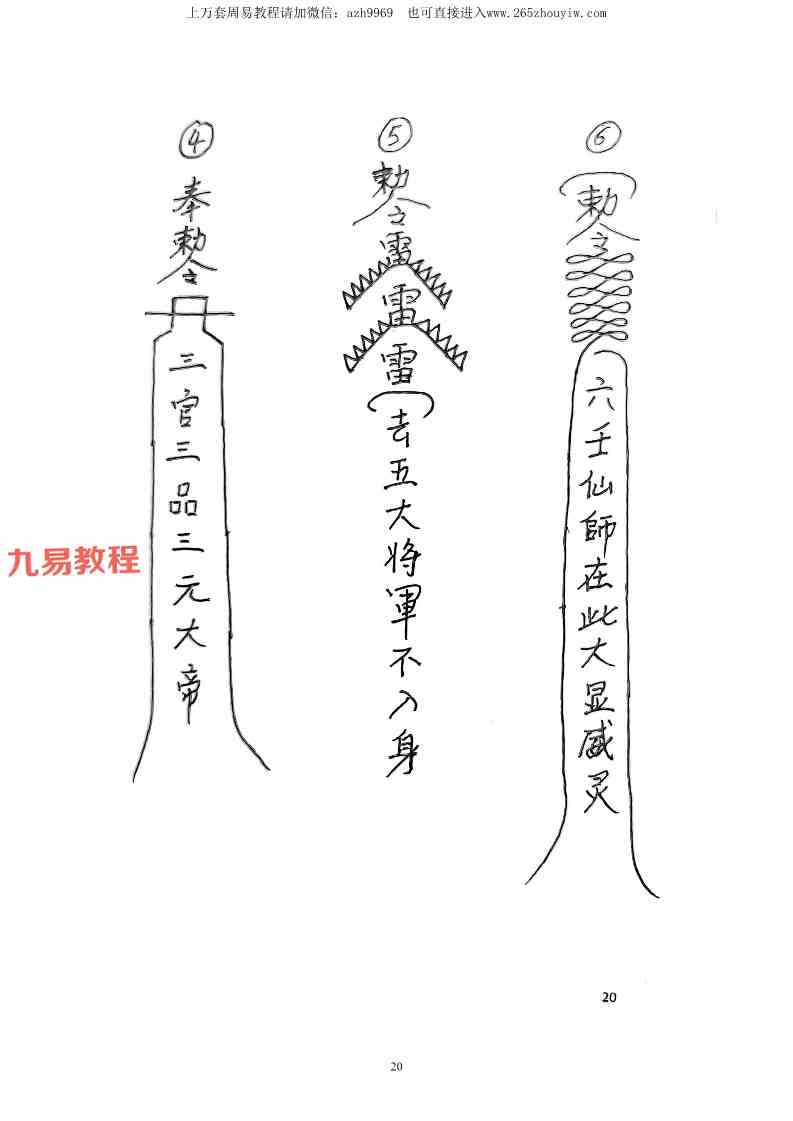 上万套周易教程请加微信：azh9969 也可直接进入www.265zhouyiw.com
④
奉勅令
三官三品三元大帝
⑤
勅令
雷
雷
雷
去五大将軍不入身
⑥
勅令
六壬仙師在此大显威灵
九易教程
20
20